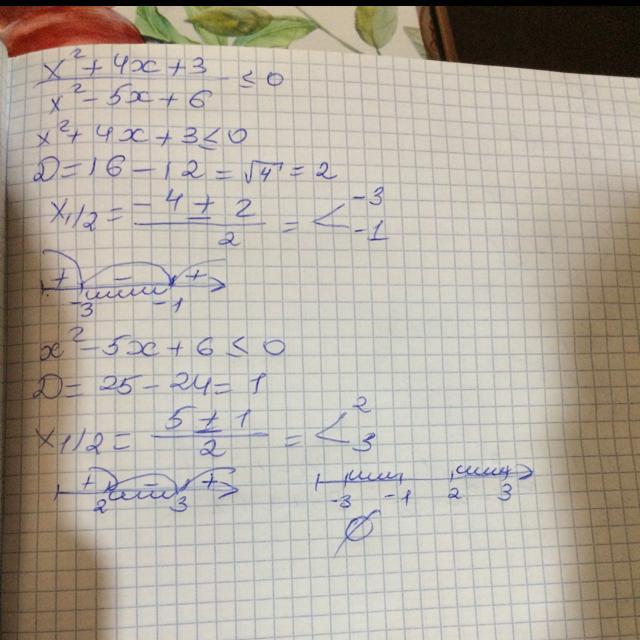 x² + 4x + 3
x² - 5x + 6 ≤ 0
x² + 4x + 3 ≤ 0
D = 16 - 12 = √4 = 2
x1/2 = -4 ± 2 / 2 = < -3 -1
+ - +
-3 -1
x² - 5x + 6 ≤ 0
D = 25 - 24 = 1
x1/2 = 5 ± 1 / 2 = < 2 3
+ - +
2 3
-3 -1 2 3
∅